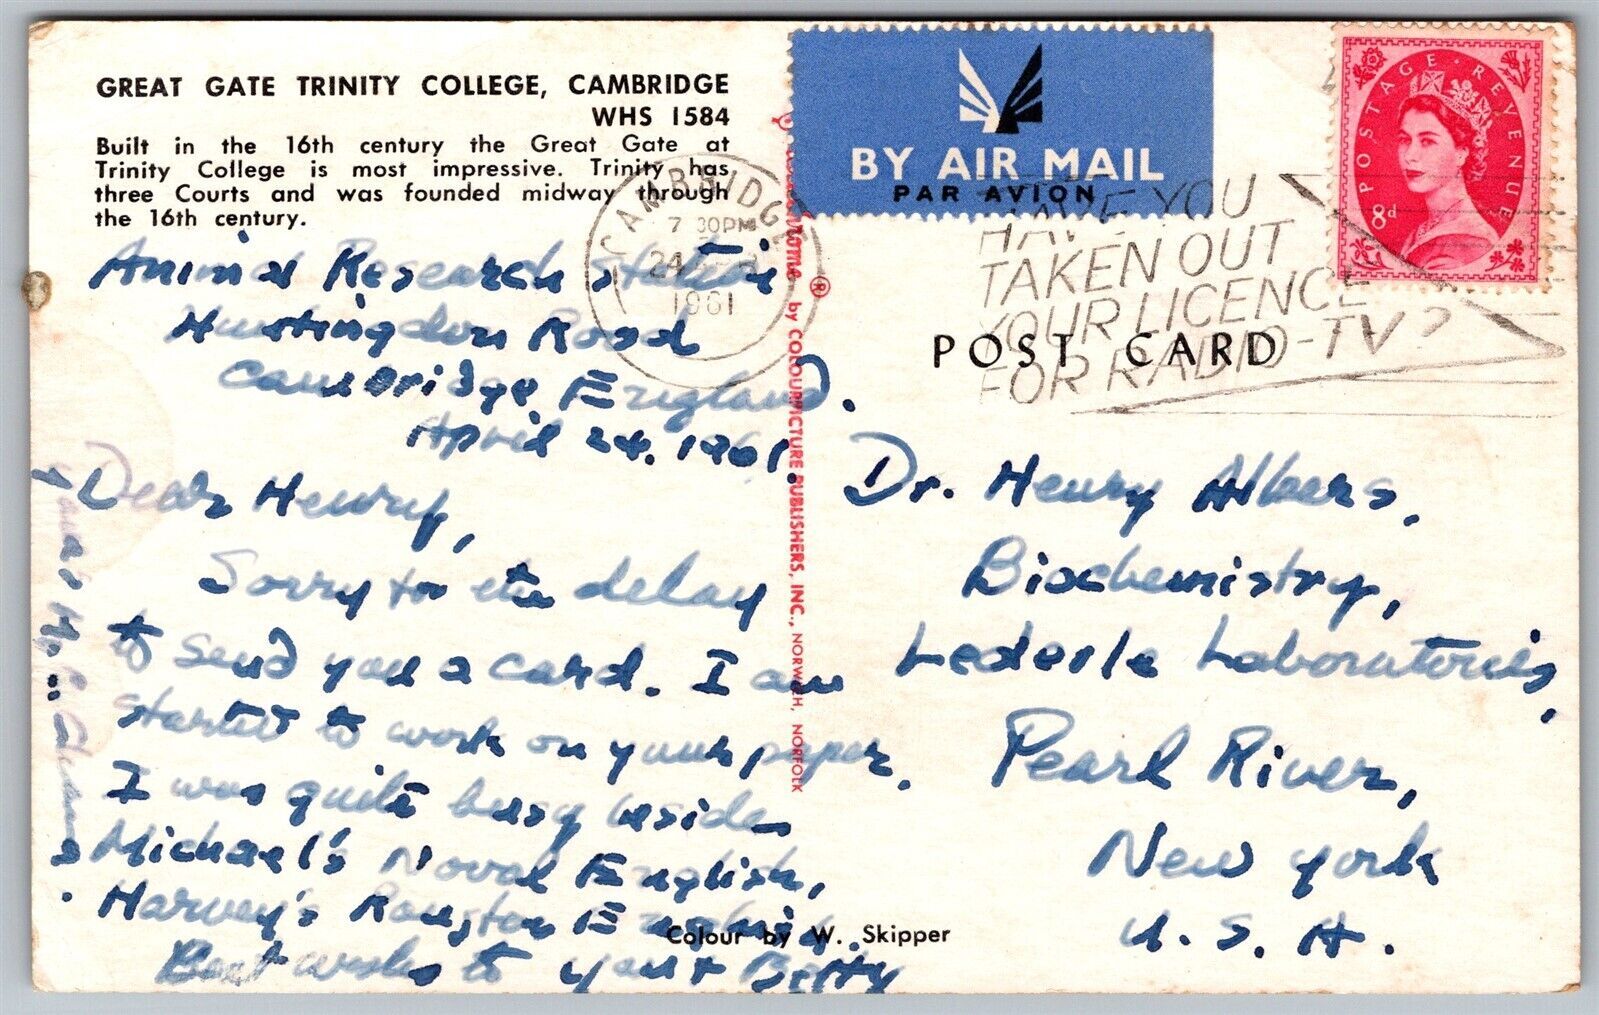 GREAT GATE TRINITY COLLEGE, CAMBRIDGE
WHS 1584
Built in the 16th century the Great Gate at
Trinity College is most impressive. Trinity has
three Courts and was founded midway through
the 16th century.
Animal Research Station
Huntingdon Road
Cambridge England.
April 24. 1961.
Dear Henry,
Sorry for the delay
to send you a card. I am
started to work on your paper.
I was quite busy besides
Michael's Noval English,
Harvey's English.
Best wishes to you & Betty
Colour by W. Skipper
by COLOURPICTURE PUBLISHERS, INC., NORWICH, NORFOLK
CAMBRIDGE
7 30PM
24
1961
BY AIR MAIL
PAR AVION
HAVE YOU
TAKEN OUT
YOUR LICENCE
FOR RADIO-TV?
POSTAGE REVENUE
8d
POST CARD
Dr. Henry Albers,
Biochemistry,
Lederle Laboratories,
Pearl River,
New York
U.S.A.